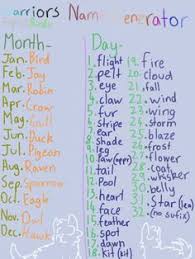 arriors Name enerator
Month-
Jan. Bird
Feb. Jay
Mar. Robin
Apr. Crow
May. Gull
Jun. Duck
Jul. Pigeon
Aug. Raven
Sep. Sparrow
Oct. Eagle
Nov. Owl
Dec. Hawk
Day-
1. flight
2. pelt
3. eye
4. claw
5. fur
6. stripe
7. ear
8. shade
9. leg
10. paw
11. tail
12. Pool
13. heart
14. face
15. feather
16. spot
17. dawn
18. kit (kit)
19. fire
20. cloud
21. fall
22. wind
23. wing
24. storm
25. blaze
26. frost
27. flower
28. coat
29. whisker
30. belly
31. Star (lea)
(no sufix)